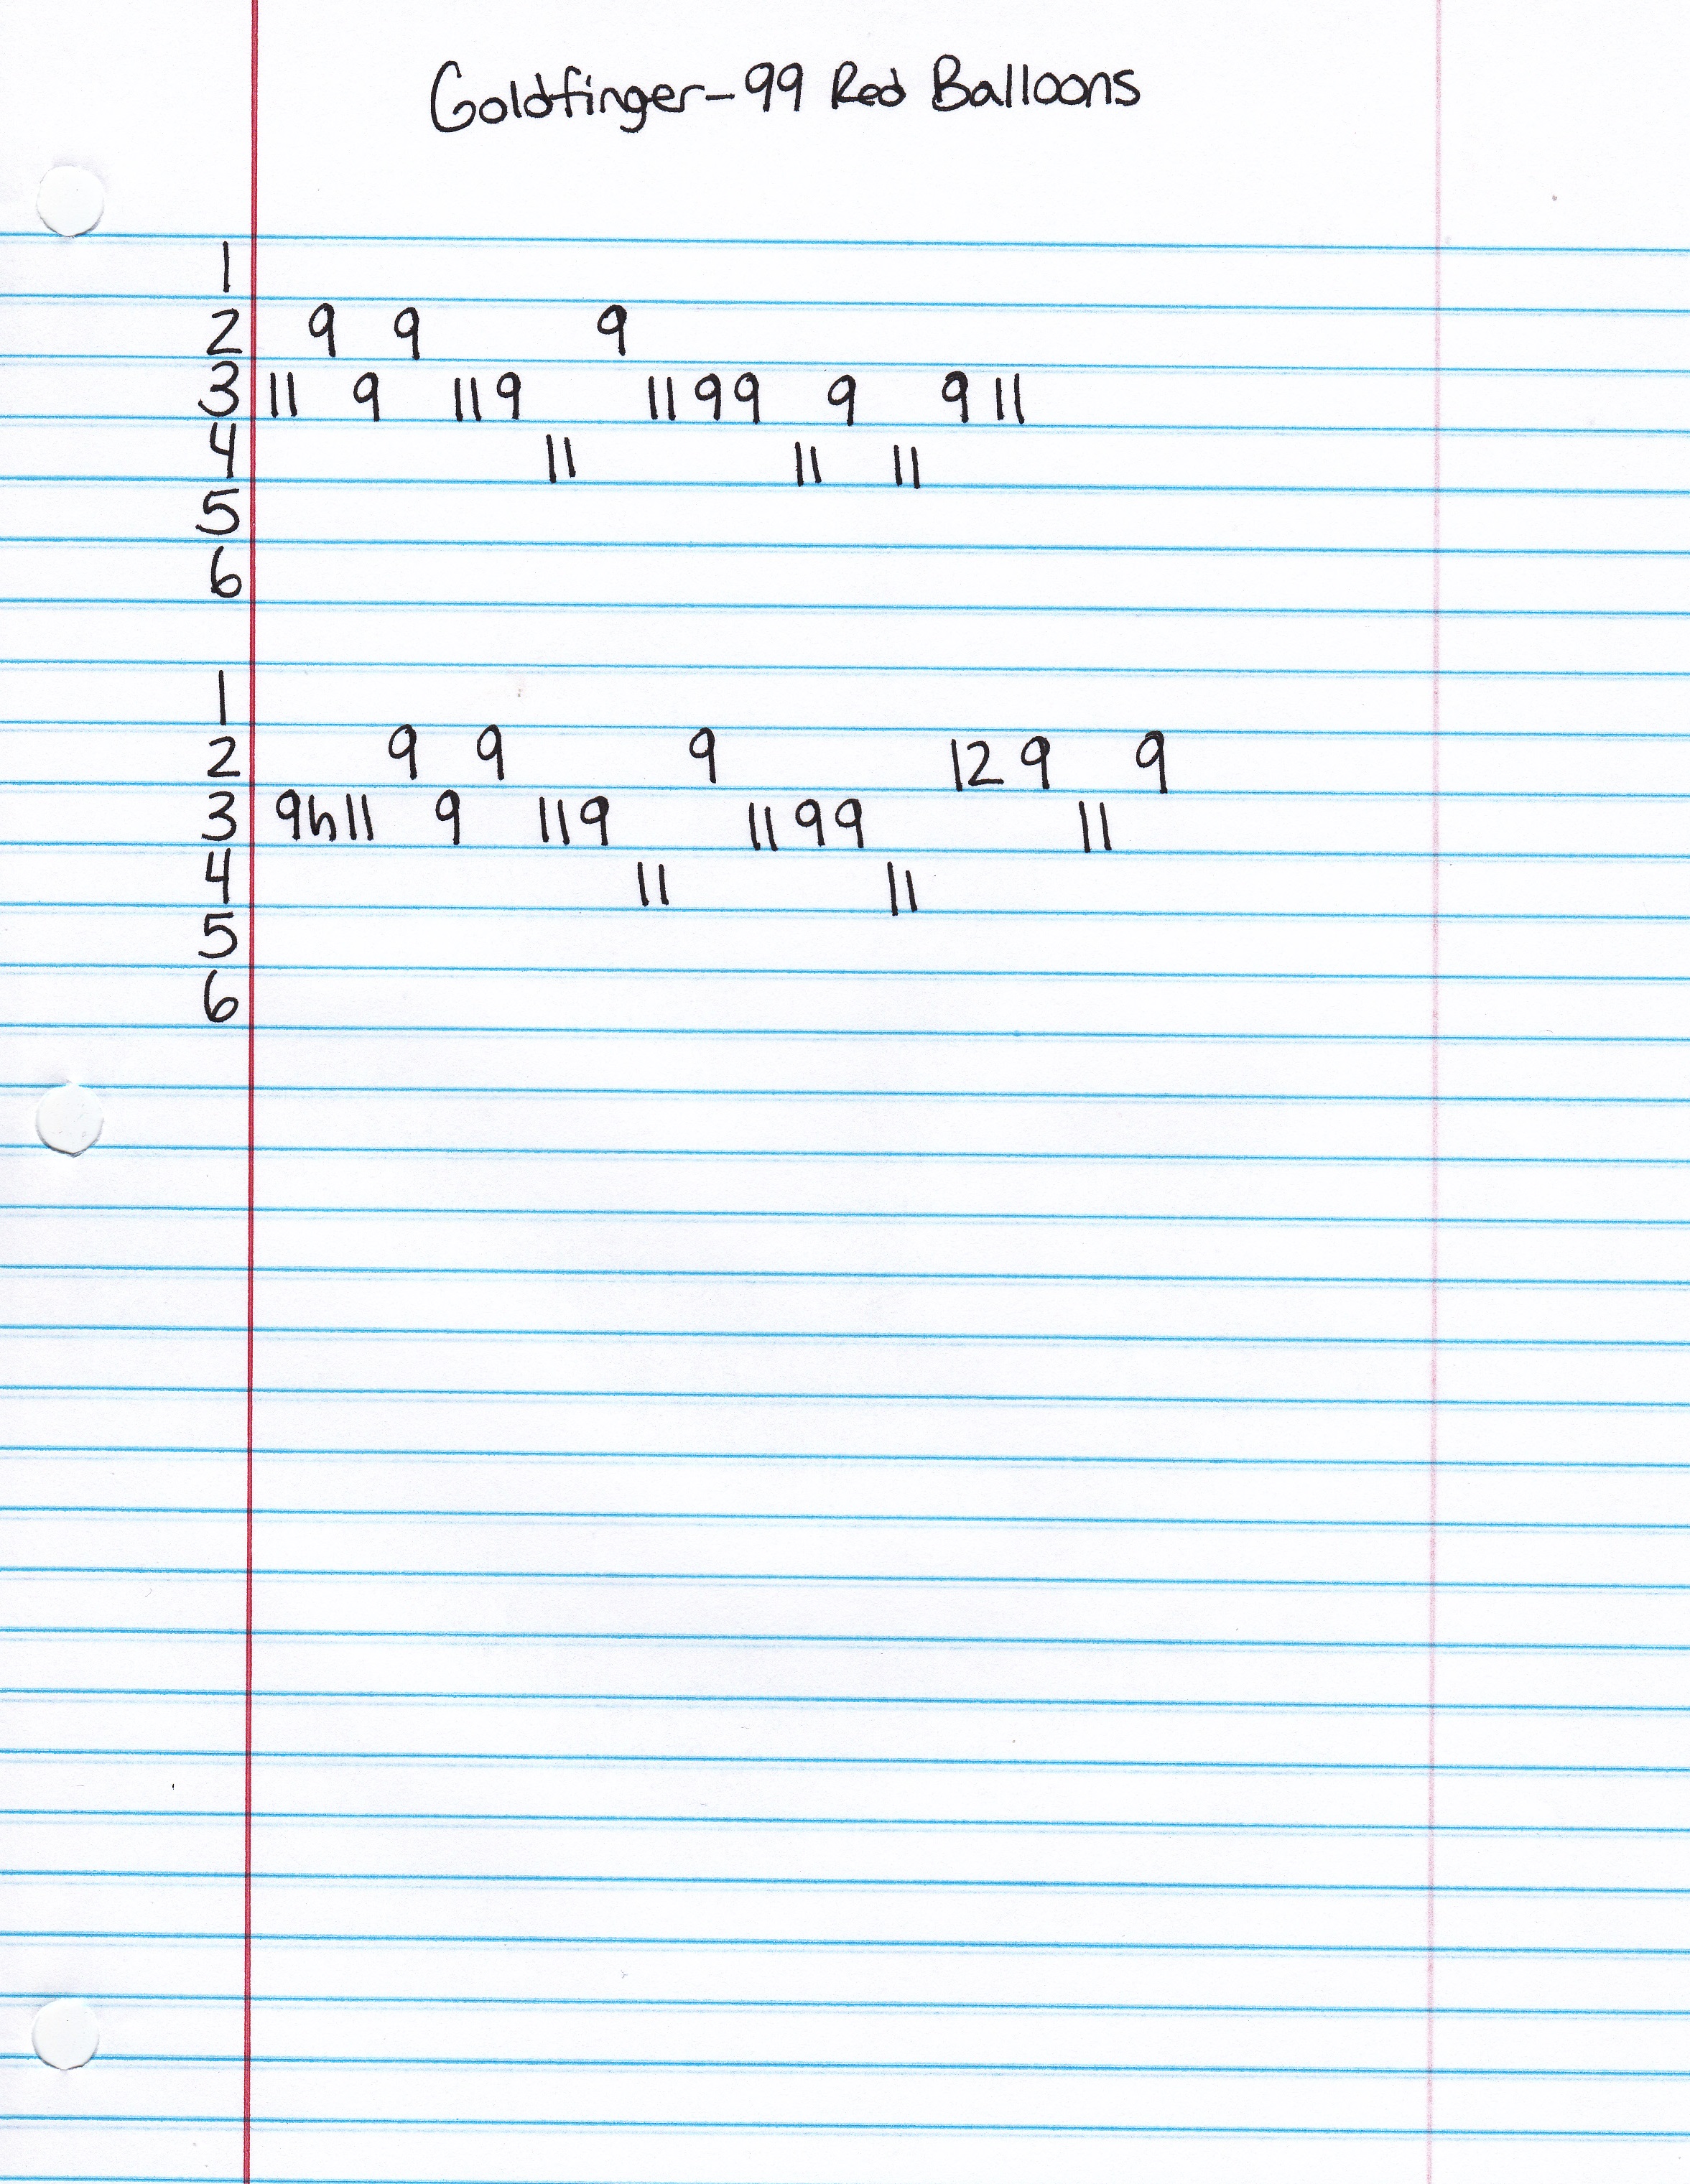 Goldfinger-99 Red Balloons
1
2 9 9 9
3 11 9 11 9 11 9 9 9 9 11
4 11 11 11
5
6
1
2 9 9 9 12 9 9
3 9h11 9 11 9 11 9 9 11
4 11 11
5
6